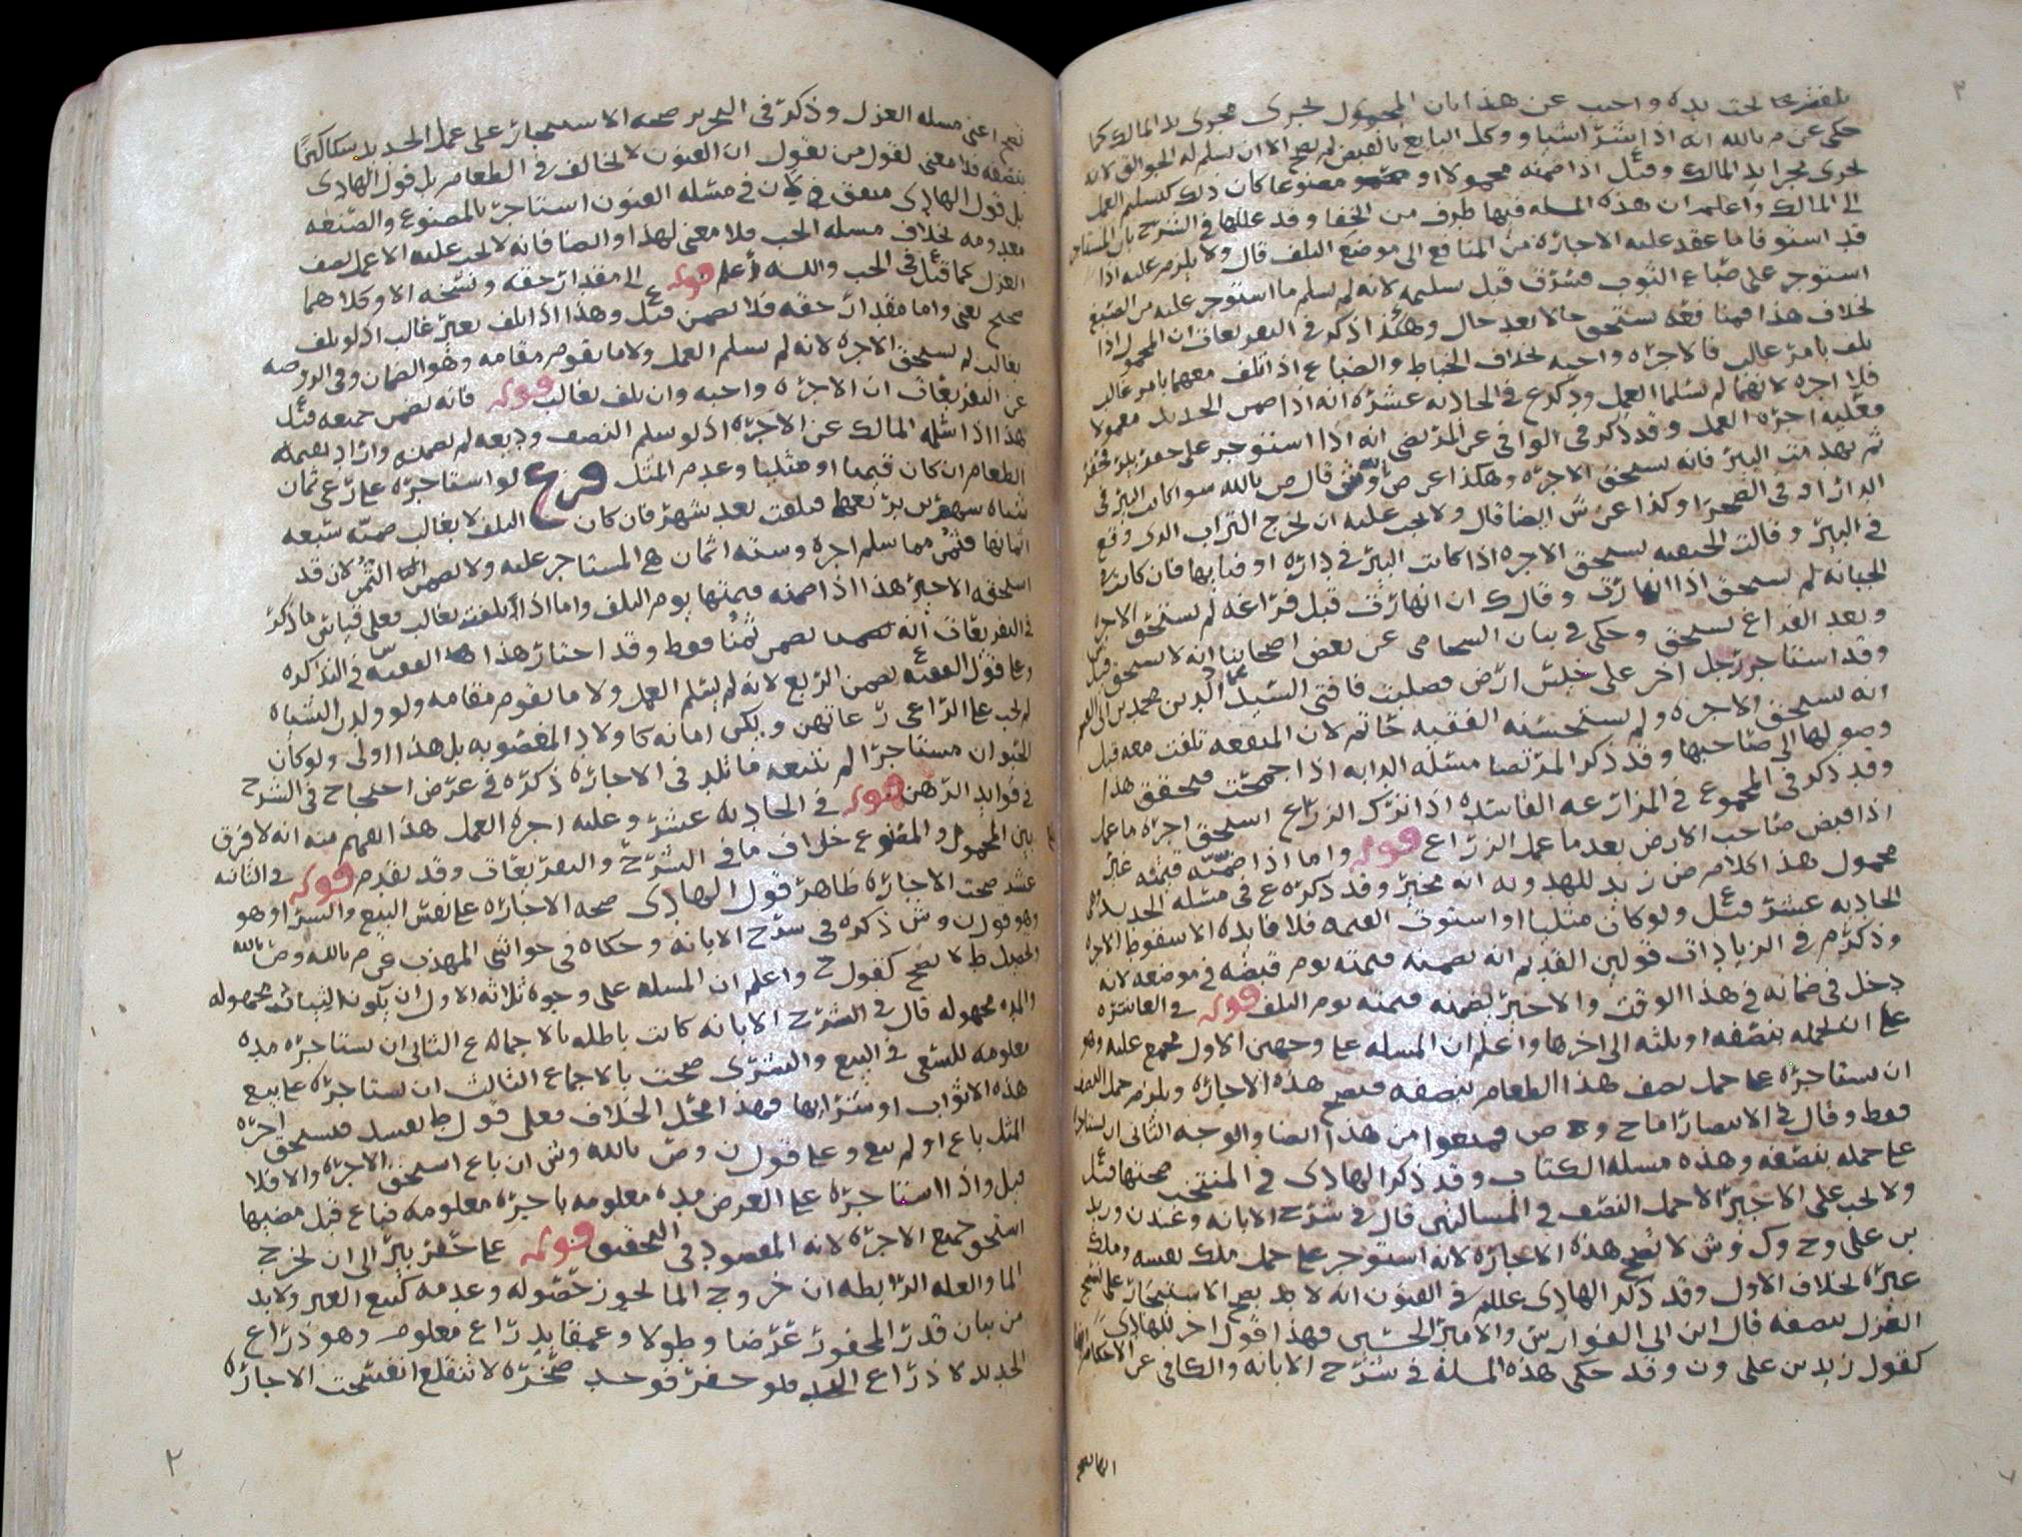 تحت يده واجب عن هذا بان المحمول لجرى مجرى يد المالك كما
حكى عن م بالله انه اذا اشترا شيا ووكل البايع بالقبض لم يصح الا ان يسلم له الجوالق لانه
لجرى مجرا يد المالك وقيل اذا ضمنه محمولا او مصنوعا كان ذلك كتسليم العمل
الى المالك واعلم ان هذه المسله فيها طرف من الخفا وقد عللها في الشرح بان المستاجر
قد استوفا ما عقد عليه الاجازه من المنافع الى موضع التلف قال ولا يلزم عليه اذا
استوجر على صباع الثوب فسرق قبل تسليمه لانه لم يسلم ما استوجر عليه من الصبغ
لخلاف هذا فهنا فقد يستحق حالا بعد حال وهكذا ذكر في التفريعات ان المحمول اذا
تلف بامر غالب فالاجره واجبه لخلاف الخياط والصباع اذا تلف معهما بامر غالب
فلا اجره لانهما لم يسلما العمل وذكر ع في الحاديه عشره انه اذا ضمن الحديد معمولا
فعليه اجره العمل وقد ذكر في الوافي عن المرتضى انه اذا استوجر على حفر بير فحفر
ثم تهدمت البير فانه يستحق الاجره وهكذا عن ص بالله وش قال ص بالله سوا كانت البير في
الدار او في الصحرا وكذا عن ش ايضا قال ولا يجب عليه ان لخرج التراب الذى وقع
في البير وقالت الحنفيه يستحق الاجره اذا كانت البير في داره او فنايها فان كانت في
الجبانه لم يستحق اذا انهارت وقال ك ان انهارت قبل فراغه لم يستحق الاجره
وبعد الفراغ يستحق وحكى في بيان السحامى عن بعض اصحابنا انه لا يستحق قيل
وقد استاجر رجل اخر على خلش ارض فصلبت فافتى السيد عماد الدين محمد بن ابى القسم
انه يستحق الاجره ولم يستحسنه الفقيه حاتم لان المنفعه تلفت معه قبل
وصولها الى صاحبها وقد ذكر المرتضا مسئله الدابه اذا جمحت فيحقق هذا
وقد ذكر في المجموع في المزارعه الفاسده اذا ترك الزراع استحق اجره ما عمل
اذا قبض صاحب الارض بعد ما عمل الزراع قوله واما اذا ضمنه قيمته غير
محمول هذا كلام ض زيد للهدويه انه مخير وقد ذكره ع في مسئله الحديد في
الحاديه عشر قيل ولو كان مثليا او استوت القيمه فلا فايده الا سقوط الاجره
وذكر م في الزيادات قولين القديم انه يضمنه قيمته يوم قبضه في موضعه لانه
دخل في ضمانه في هذا الوقت والاخير يضمنه قيمته يوم التلف قوله في العاشره
على ان لحمله بنصفه او بثلثه الى اخرها واعلم ان المسله على وجهين الاول مجمع عليه وهو
ان يستاجره على حمل نصف هذا الطعام بنصفه فتصح هذه الاجاره ويلزم حمل النصف
فقط وقال في الانتصار اما ح و ص فمنعوا من هذا ايضا والوجه الثانى ان يستاجره
على حمله بنصفه وهذه مسله الكتاب وقد ذكر الهادى في المنتخب صحتها قيل
ولا لجب على الاجير الا حمل النصف في المسالتين قال في شرح الابانه وعند ن وزيد
بن على وح وك وش لا تصح هذه الاجاره لانه استوجر على حمل ملك نفسه وملك
غيره لخلاف الاول وقد ذكر الهادى عللم في الفنون انه لا يصح الاستيجار على نسج
الغزل بنصفه قال ابن ابى الفوارس والامير الحسين فهذا قول اخر للهادى
كقول زيد بن على ون وقد حكى هذه المسله في شرح الابانه والكافى عن الاحكام
نعم اعنى مسله الغزل وذكر في التحرير صحه الاستيجار على عمل الحديد سكاكينا
بنصفه فلا معنى لقول من يقول ان الفنون لا لخالف في الطعام بل قول الهادى
بل قول الهادى متفق لان في مسله الفنون استاجر بالمصنوع والصنعه
معدومه لخلاف مسله الحب فلا معنى لهذا وايضا فانه لا لجب عليه الا عمل نصف
الغزل كما قيل في الحب والله اعلم قوله الى مقدار حقه ونسخه الا وكلاهما
صحيح يعنى واما مقدار حقه فلا يضمن قيل وهذا اذا تلف بغير غالب اذ لو تلف
بغالب لم يستحق الاجره لانه لم يسلم العمل ولا ما يقوم مقامه وهو الضمان وفي الروضه
عن التفريعات ان الاجره واجبه وان تلف بغالب قوله فانه يضمن جميعه قيل
هذا اذا شله المالك عن الاجره اذ لو سلم النصف وديعه لم يضمنه واراد يضمنه
الطعام ان كان قيميا او مثليا وعدم المثل فرع لو استاجره على رعى ثمان
شياه شهرين بربعها فتلفت بعد شهر فان كان التلف لا بغالب ضمنه سبعه
اثمانها فثمن منها سلم اجره وسته اثمان هى المستاجر عليه ولا يضمن الثمن لان قد
استحقه الاجير هذا اذا ضمنه قيمتها يوم التلف واما اذا تلفت بغالب فعلى قياس ما ذكر
في التفريعات انه يضمن ثمنا فقط وقد اختار هذا الفقيه في التذكره
وعلى قول الفقيه يضمن الربع لانه لم يسلم العمل ولا ما يقوم مقامه ولو ولدن الشياه
لم لجب على الراعى رعايتهن ويكن امانه كاولاد المغصوبه بل هذا اولى ولو كان
الحيوان مستاجرا لم يتبعه ما تلد في الاجاره ذكره في عرض احتجاج في الشرح
في فوايد الرهن قوله في الحاديه عشر وعليه اجره العمل هذا يفهم منه انه لا فرق
بين المحمول والمصنوع خلاف ما في الشرح والتفريعات وقد تقدم قوله في الثانيه
عشر صحت الاجاره ظاهر قول الهادى صحه الاجاره على نفس البيع والشرا وهو
وهو قول ن وش ذكره في شرح الابانه وحكاه في حواشى المهذب عن م بالله وص بالله
وط لا يصح كقول ح واعلم ان المسله على وجوه ثلاثه الاول ان يكون الثياب مجهوله
والمده مجهوله قال في الشرح الابانه كانت باطله بالاجماع ع الثانى ان يستاجره مده
معلومه للسعى في البيع والشرى صحت بالاجماع الثالث ان يستاجره على بيع
هذه الاثواب او شرايها فهذا محل الخلاف فعلى قول ط يفسد فيستحق اجره
المثل باع او لم يبع وعلى قول ن وص بالله وش ان باع استحق الاجره والا فلا
قيل واذا استاجره على العرض مده معلومه باجره معلومه فباع قبل مضيها
استحق جميع الاجره لانه المقصود في التحقيق قوله على حفر بير الى ان لخرج
الما والعله الرابطه ان خروج الما لجوز حصوله وعدمه كبيع الغرر ولا بد
من بيان قدر المحفور عرضا وطولا وعمقا بذراع معلوم وهو ذراع
الحديد لا ذراع اليد فلو حفر فوجد صخره لا تنقلع انفسخت الاجاره